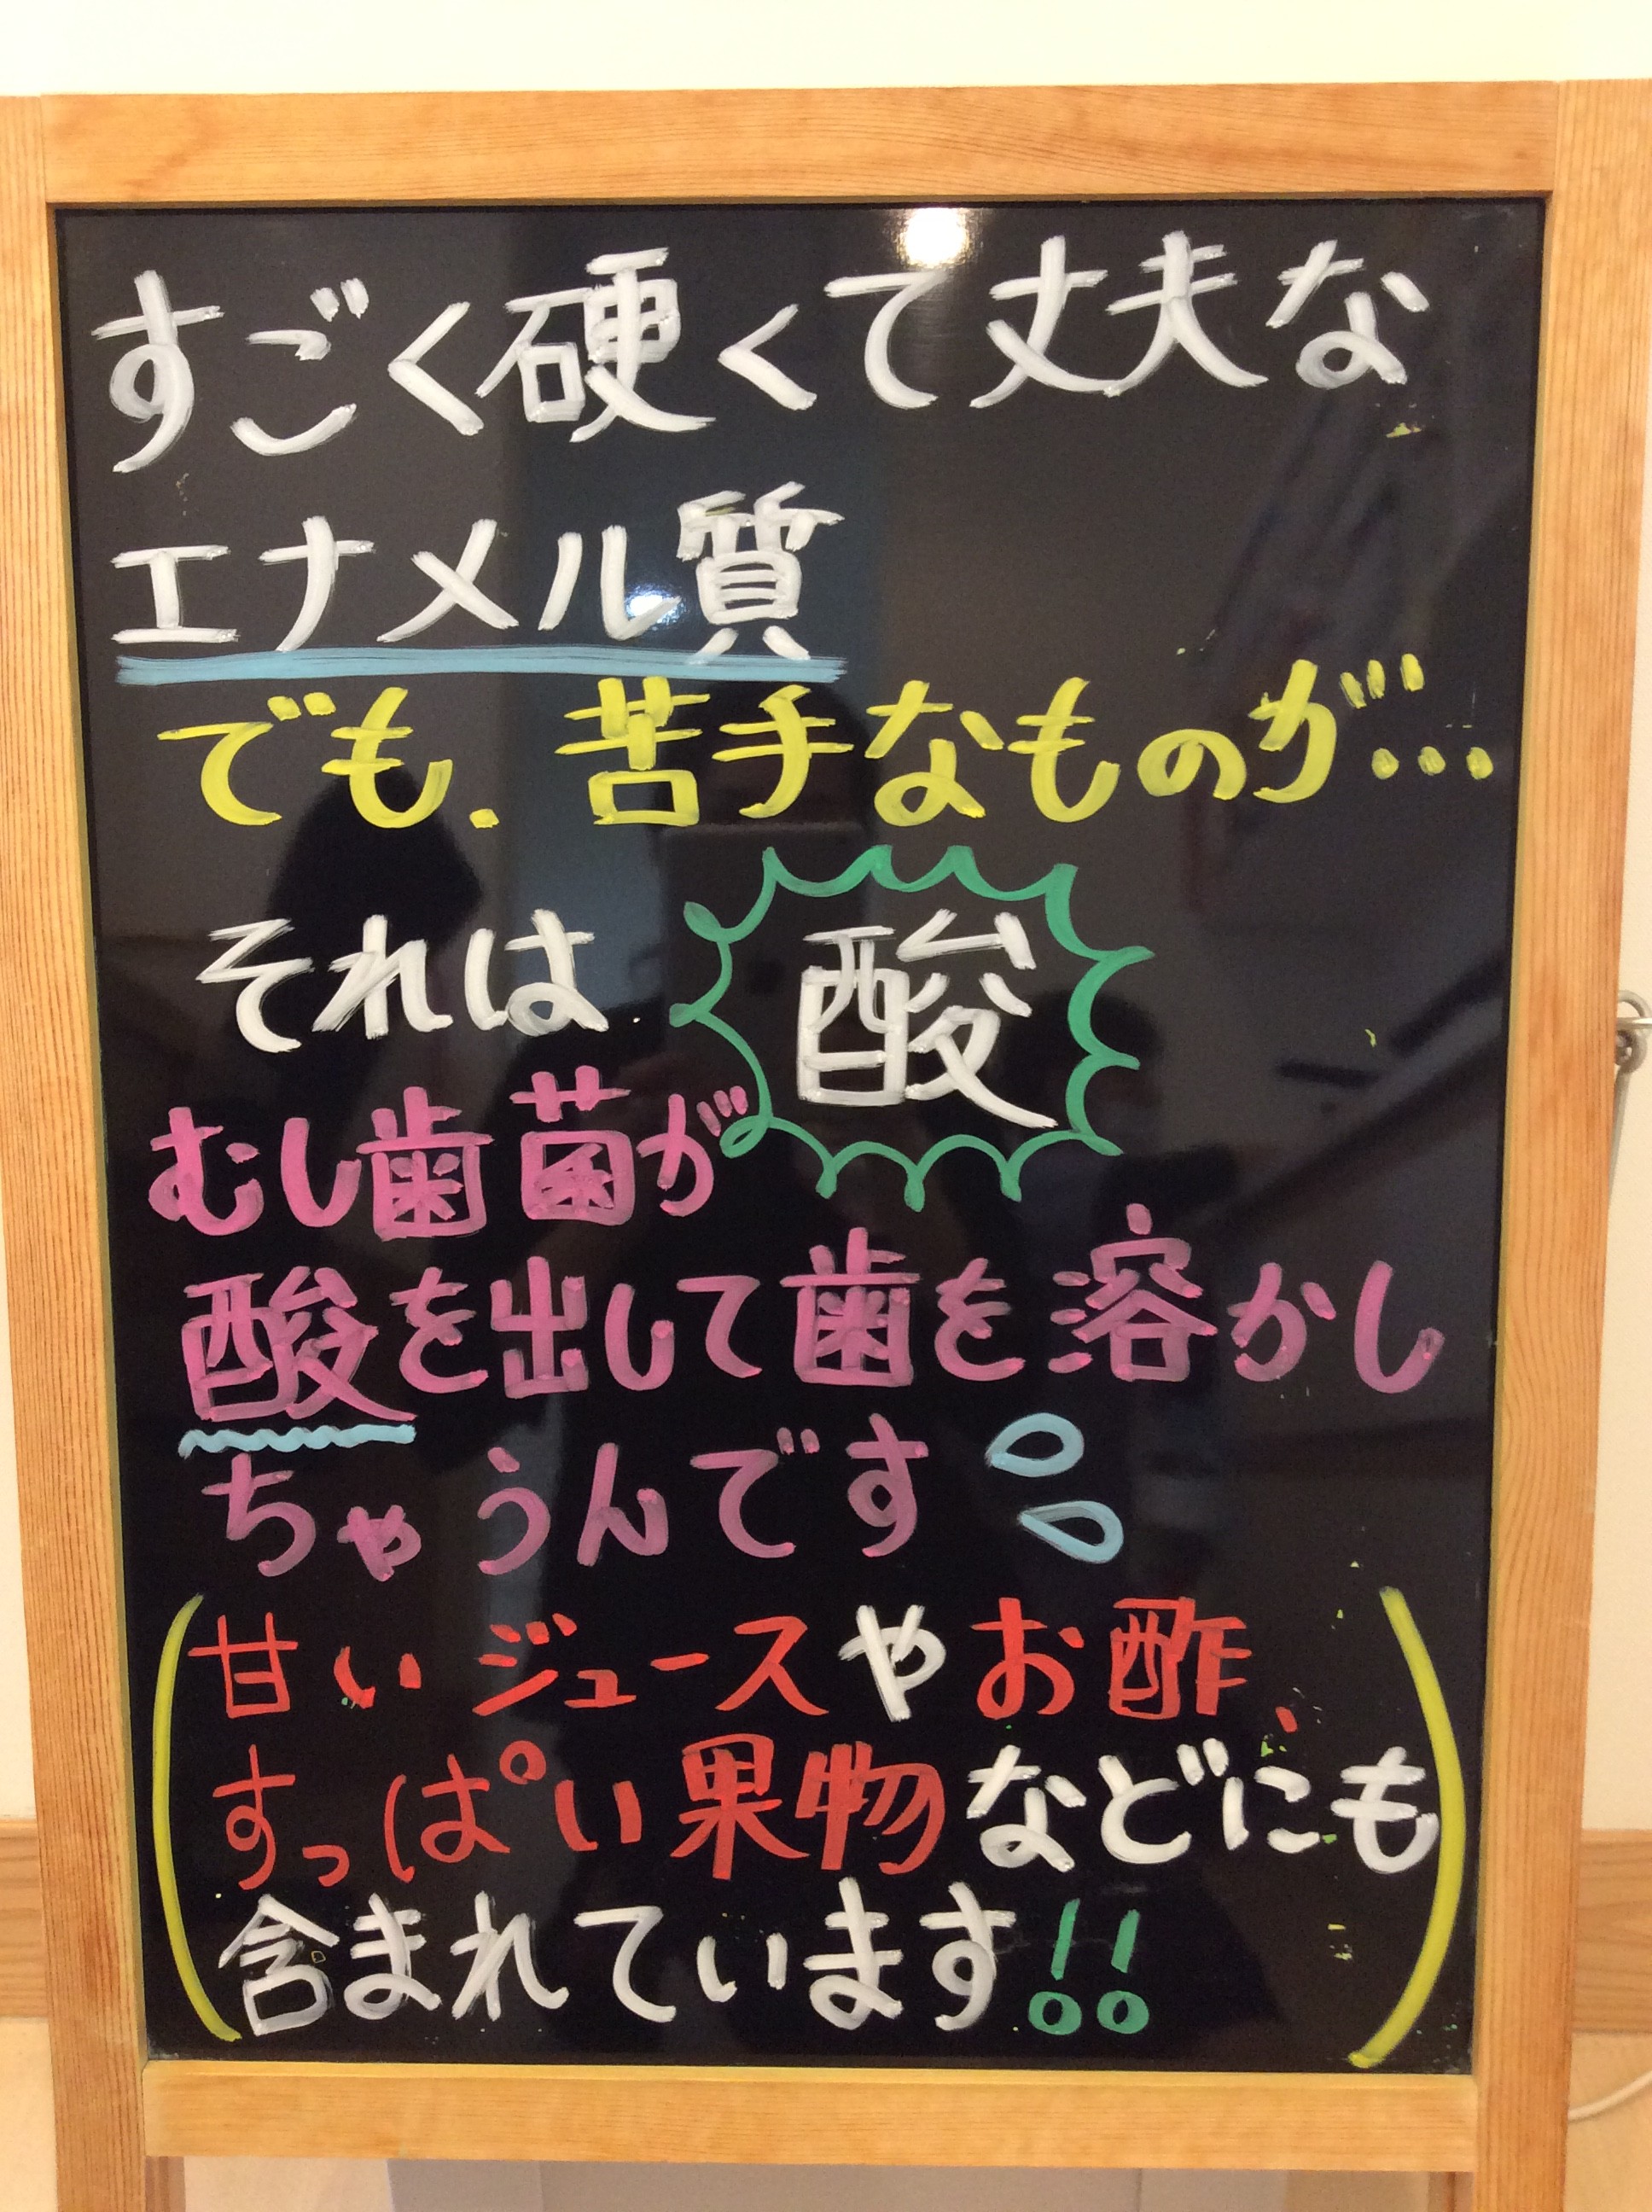 すごく硬くて丈夫な
エナメル質
でも、苦手なものが…
それは 酸
むし歯菌が
酸を出して歯を溶かし
ちゃうんです
(甘いジュースやお酢、
すっぱい果物などにも
含まれています!!)